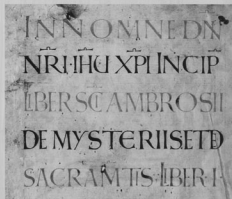 INNOMINEDNI
NRI·IHUXPIINCIP
LIBERSCIAMBROSII
DEMYSTERIISETD
SACRAMTISLIBER·I·